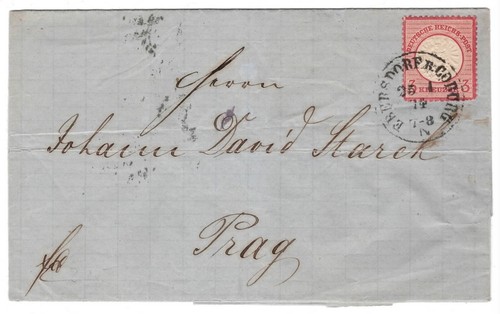 DEUTSCHE REICHS-POST
3 KREUZER 3
EBERSDORF B. COBURG
25 1
7-8
N
Herrn
Johann David Starck
Prag